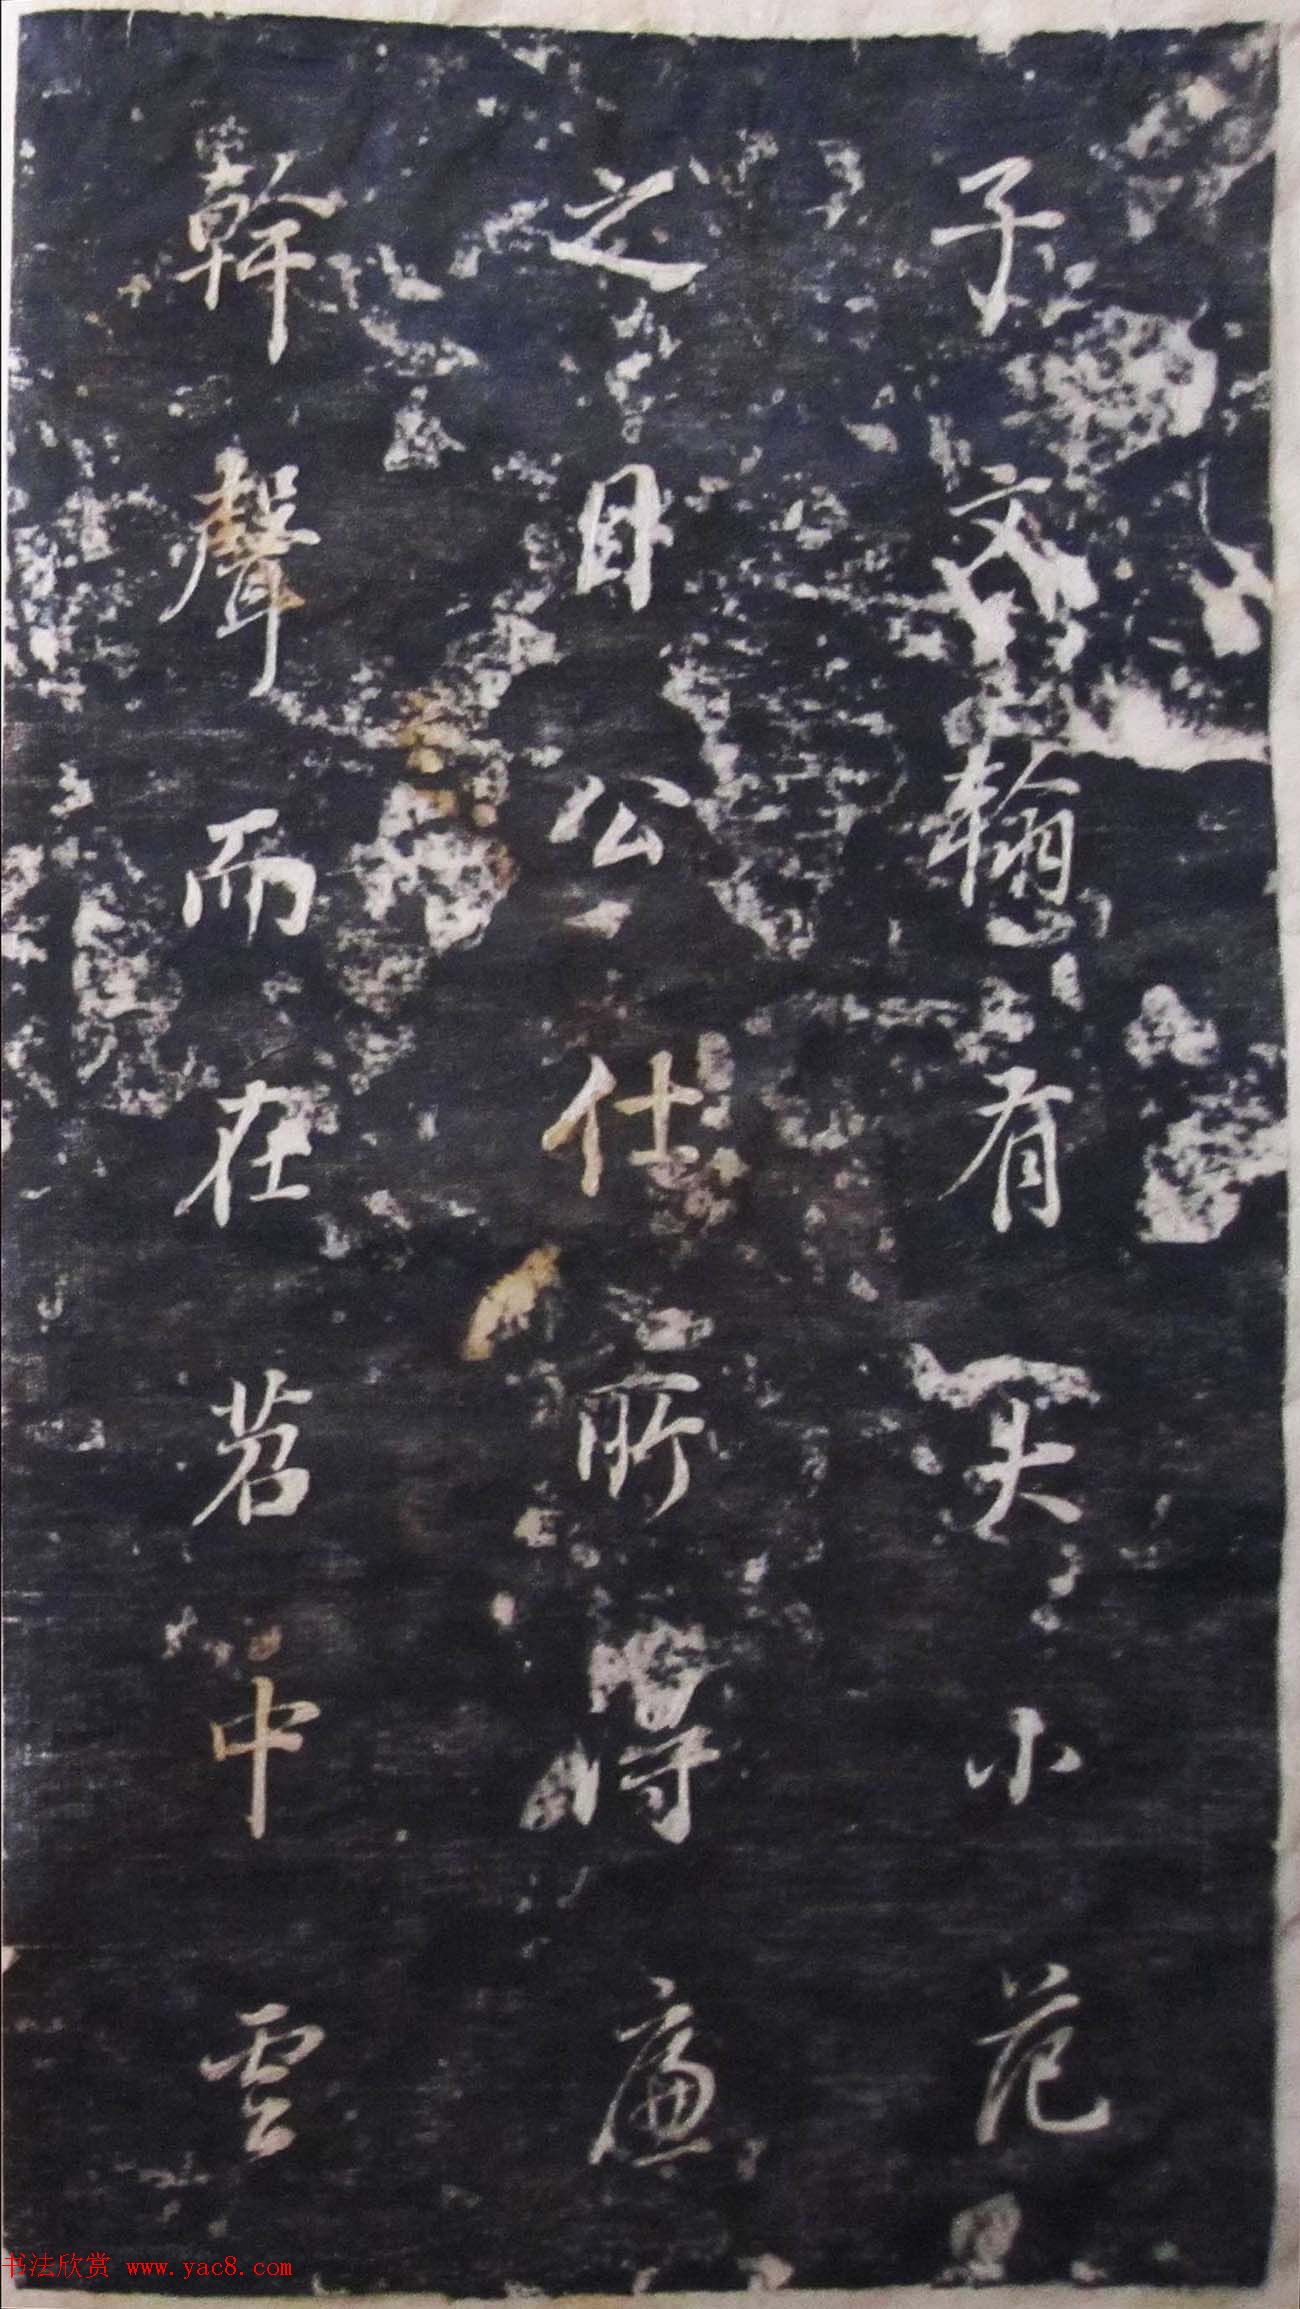 子文翰有大小范
之目公仕所得廉
幹聲而在苕中雲
书法欣赏 www.yac8.com